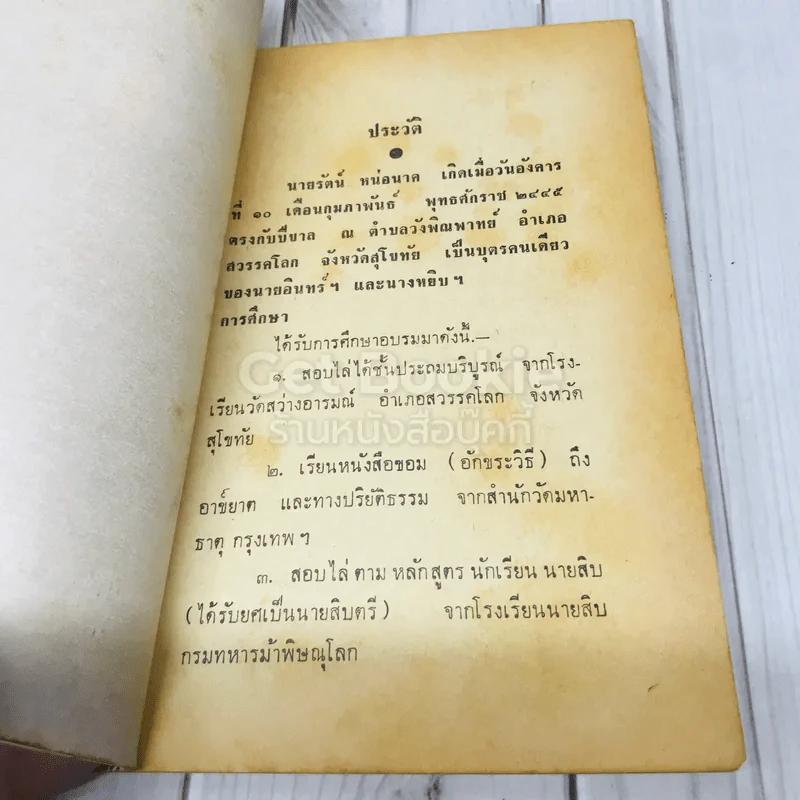 ประวัติ
นายรัตน์ หน่อนาค เกิดเมื่อวันอังคาร
ที่ ๑๐ เดือนกุมภาพันธ์ พุทธศักราช ๒๔๔๕
ตรงกับปีขาล ณ ตำบลวังพิณพาทย์ อำเภอ
สวรรคโลก จังหวัดสุโขทัย เป็นบุตรคนเดียว
ของนายอินทร์ฯ และนางหยิบฯ
การศึกษา
ได้รับการศึกษาอบรมมาดังนี้.—
๑. สอบไล่ได้ชั้นประถมบริบูรณ์ จากโรง-
เรียนวัดสว่างอารมณ์ อำเภอสวรรคโลก จังหวัด
สุโขทัย
๒. เรียนหนังสือขอม (อักขระวิธี) ถึง
อาข์ยาต และทางปริยัติธรรม จากสำนักวัดมหา-
ธาตุ กรุงเทพฯ
๓. สอบไล่ ตาม หลักสูตร นักเรียน นายสิบ
(ได้รับยศเป็นนายสิบตรี) จากโรงเรียนนายสิบ
กรมทหารม้าพิษณุโลก
Get Bookie
ร้านหนังสือบุ๊คกี้